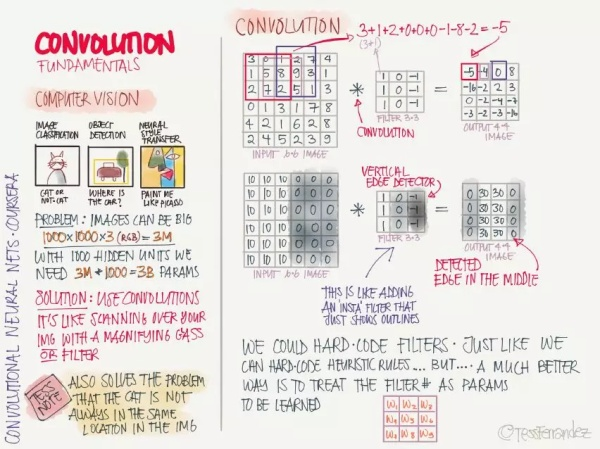 CONVOLUTION
FUNDAMENTALS
COMPUTER VISION
IMAGE
CLASSIFICATION
OBJECT
DETECTION
NEURAL
STYLE
TRANSFER
CAT OR
NOT-CAT
WHERE IS
THE CAR?
PAINT ME
LIKE PICASSO
PROBLEM: IMAGES CAN BE BIG
1000×1000×3 (RGB) = 3M
WITH 1000 HIDDEN UNITS WE
NEED 3M*1000=3B PARAMS
SOLUTION: USE CONVOLUTIONS
IT'S LIKE SCANNING OVER YOUR
IMG WITH A MAGNIFYING GASS
OR FILTER
TESS
NOTE
ALSO SOLVES THE PROBLEM
THAT THE CAT IS NOT
ALWAYS IN THE SAME
LOCATION IN THE IMG
CONVOLUTIONAL NEURAL NETS · COURSERA
CONVOLUTION
3+1+2+0+0+0-1-8-2=-5
(3*1)
3 0 1 2 7 4
1 5 8 9 3 1
2 7 2 5 1 3
0 1 3 1 7 8
4 2 1 6 2 8
2 4 5 2 3 9
INPUT 6×6 IMAGE
*
CONVOLUTION
1 0 -1
1 0 -1
1 0 -1
FILTER 3×3
=
-5 -4 0 8
-10 -2 2 3
0 -2 -4 -7
-3 -2 -3 -16
OUTPUT 4×4
IMAGE
10 10 10 0 0 0
10 10 10 0 0 0
10 10 10 0 0 0
10 10 10 0 0 0
10 10 10 0 0 0
10 10 10 0 0 0
INPUT 6×6 IMAGE
*
VERTICAL
EDGE DETECTOR
1 0 -1
1 0 -1
1 0 -1
FILTER 3×3
=
0 30 30 0
0 30 30 0
0 30 30 0
0 30 30 0
OUTPUT 4×4
IMAGE
DETECTED
EDGE IN THE MIDDLE
THIS IS LIKE ADDING
AN 'INSTA' FILTER THAT
JUST SHOWS OUTLINES
WE COULD HARD-CODE FILTERS · JUST LIKE WE
CAN HARD-CODE HEURISTIC RULES.... BUT.... A MUCH BETTER
WAY IS TO TREAT THE FILTER# AS PARAMS
TO BE LEARNED
W1 W2 W3
W4 W5 W6
W7 W8 W9
©TESSFERRANDEZ